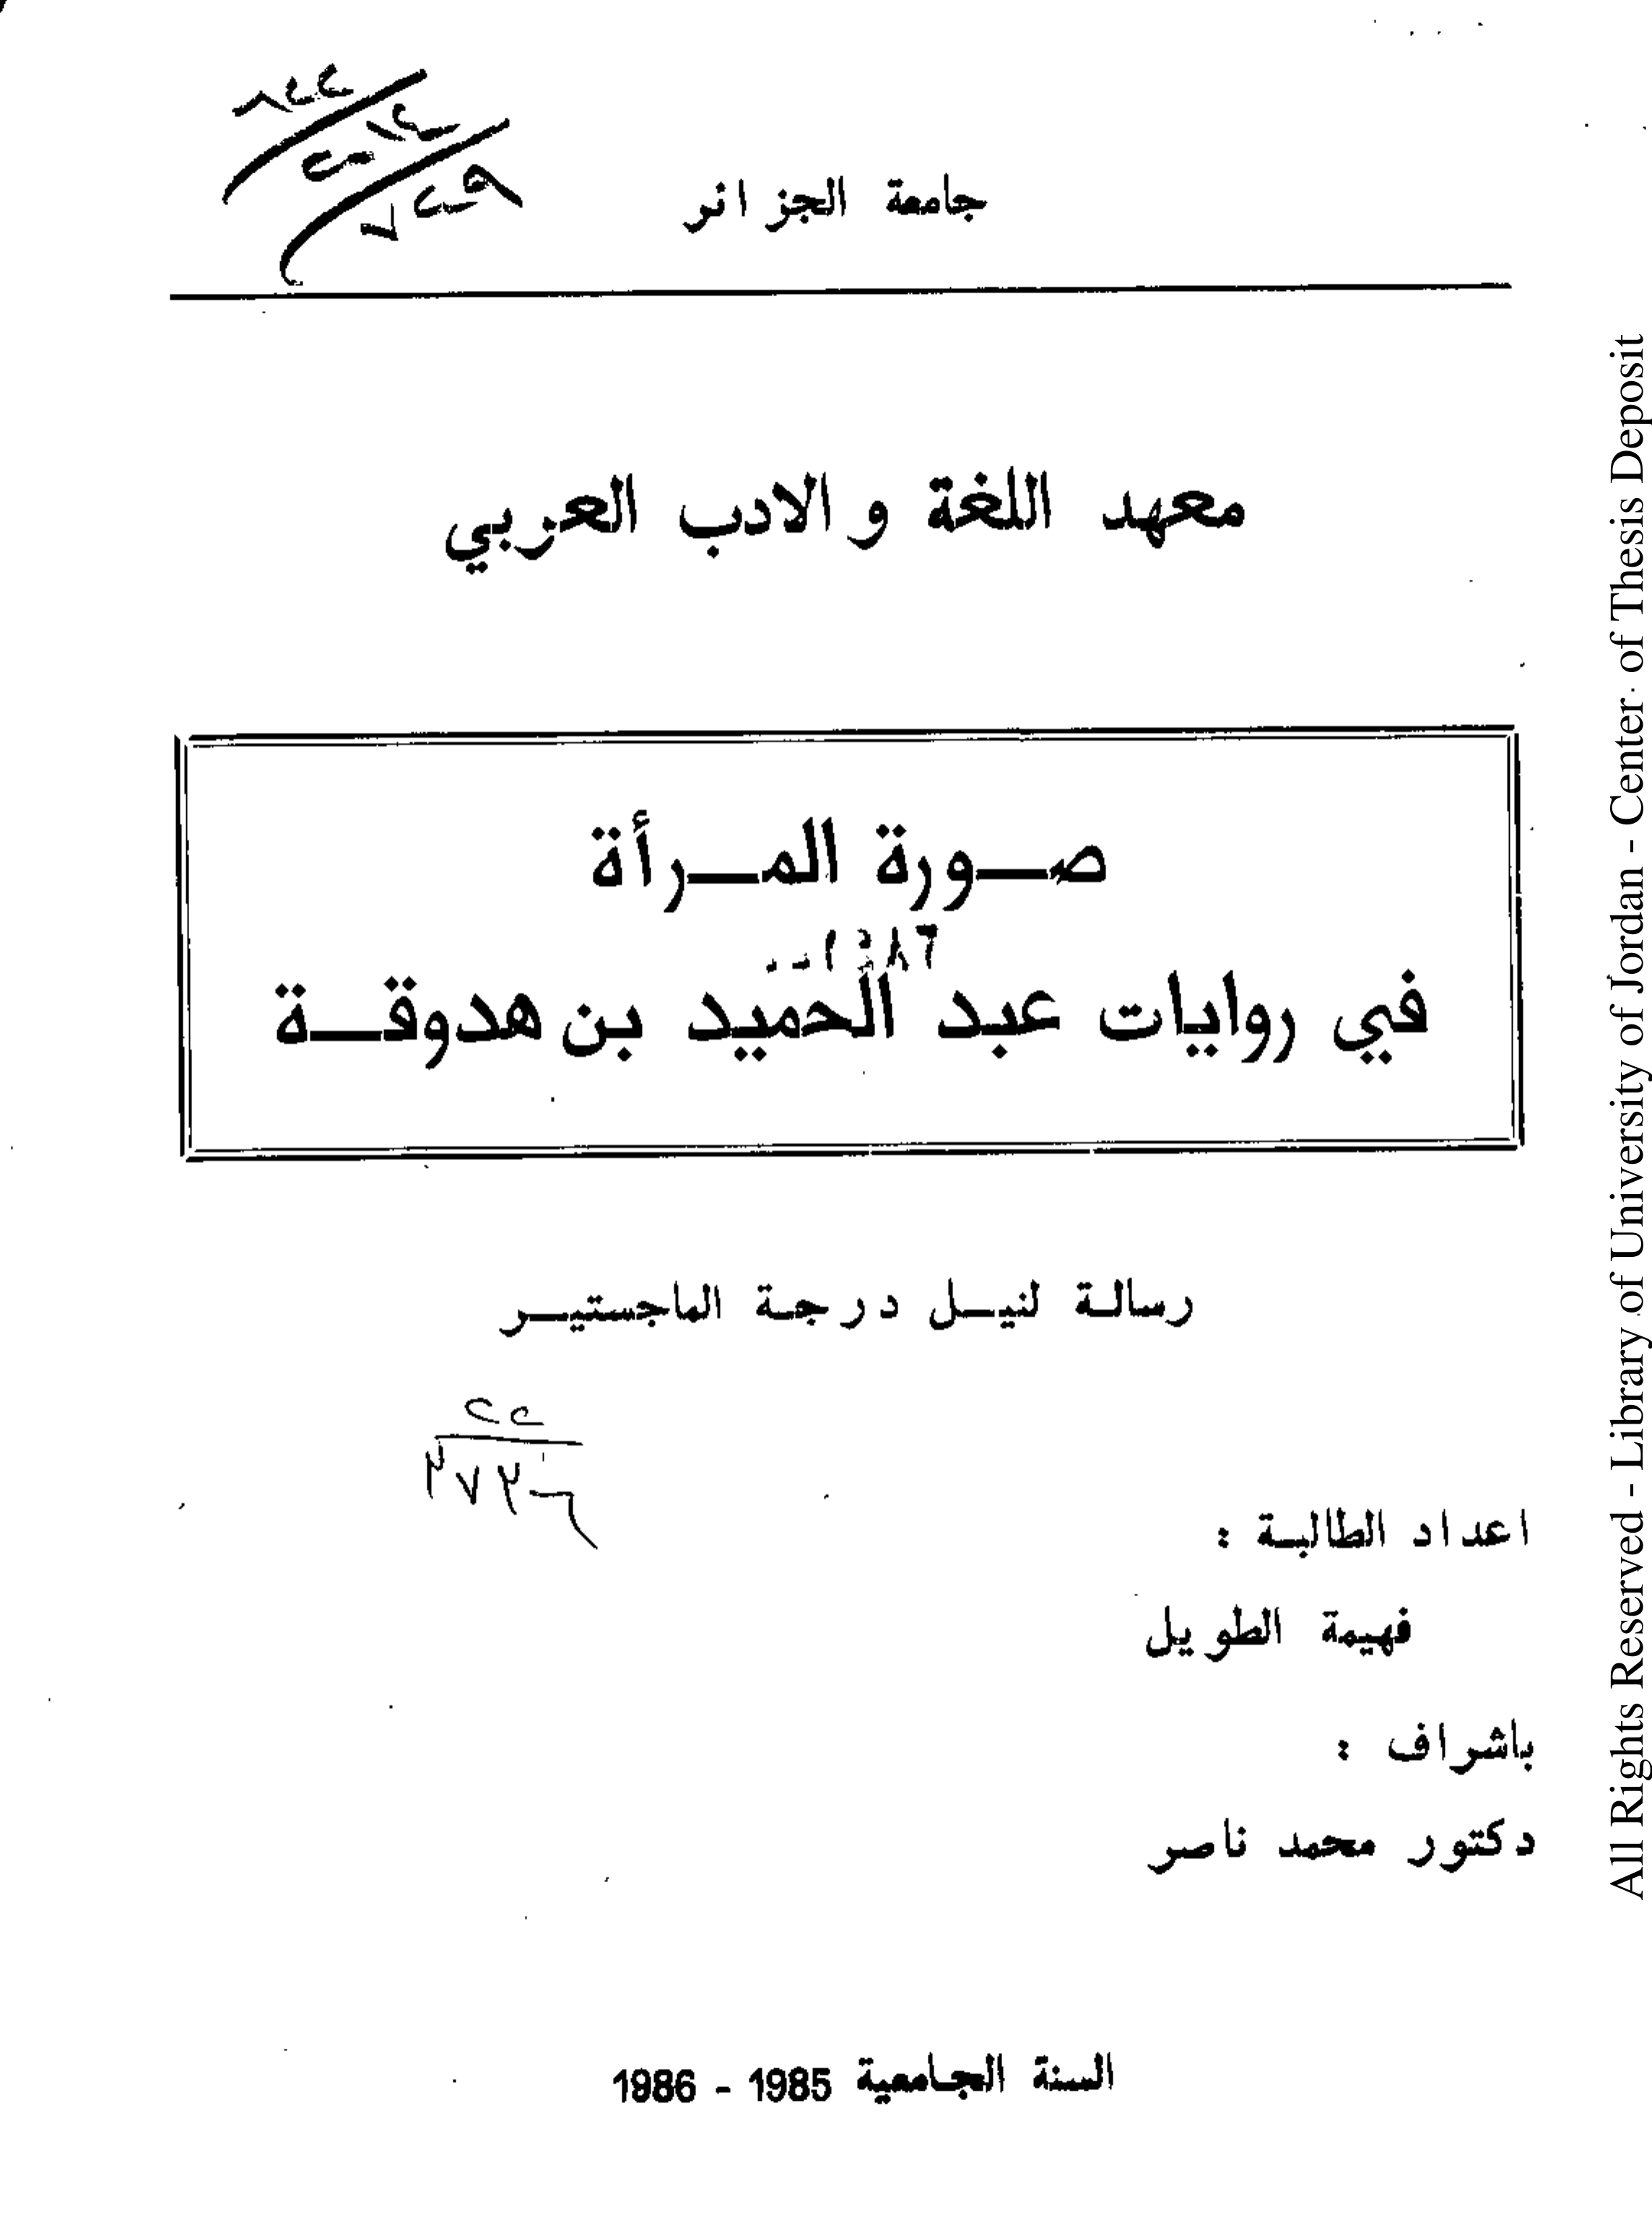 جامعة الجزائر
معهد اللغة و الادب العربي
صـورة المـرأة
في روايات عبد الحميد بن هدوقـة
رسالـة لنيـل درجـة الماجستيـر
اعداد الطالبـة :
فهيمة الطويل
باشراف :
دكتور محمد ناصر
السنة الجامعية 1985 - 1986
All Rights Reserved - Library of University of Jordan - Center of Thesis Deposit